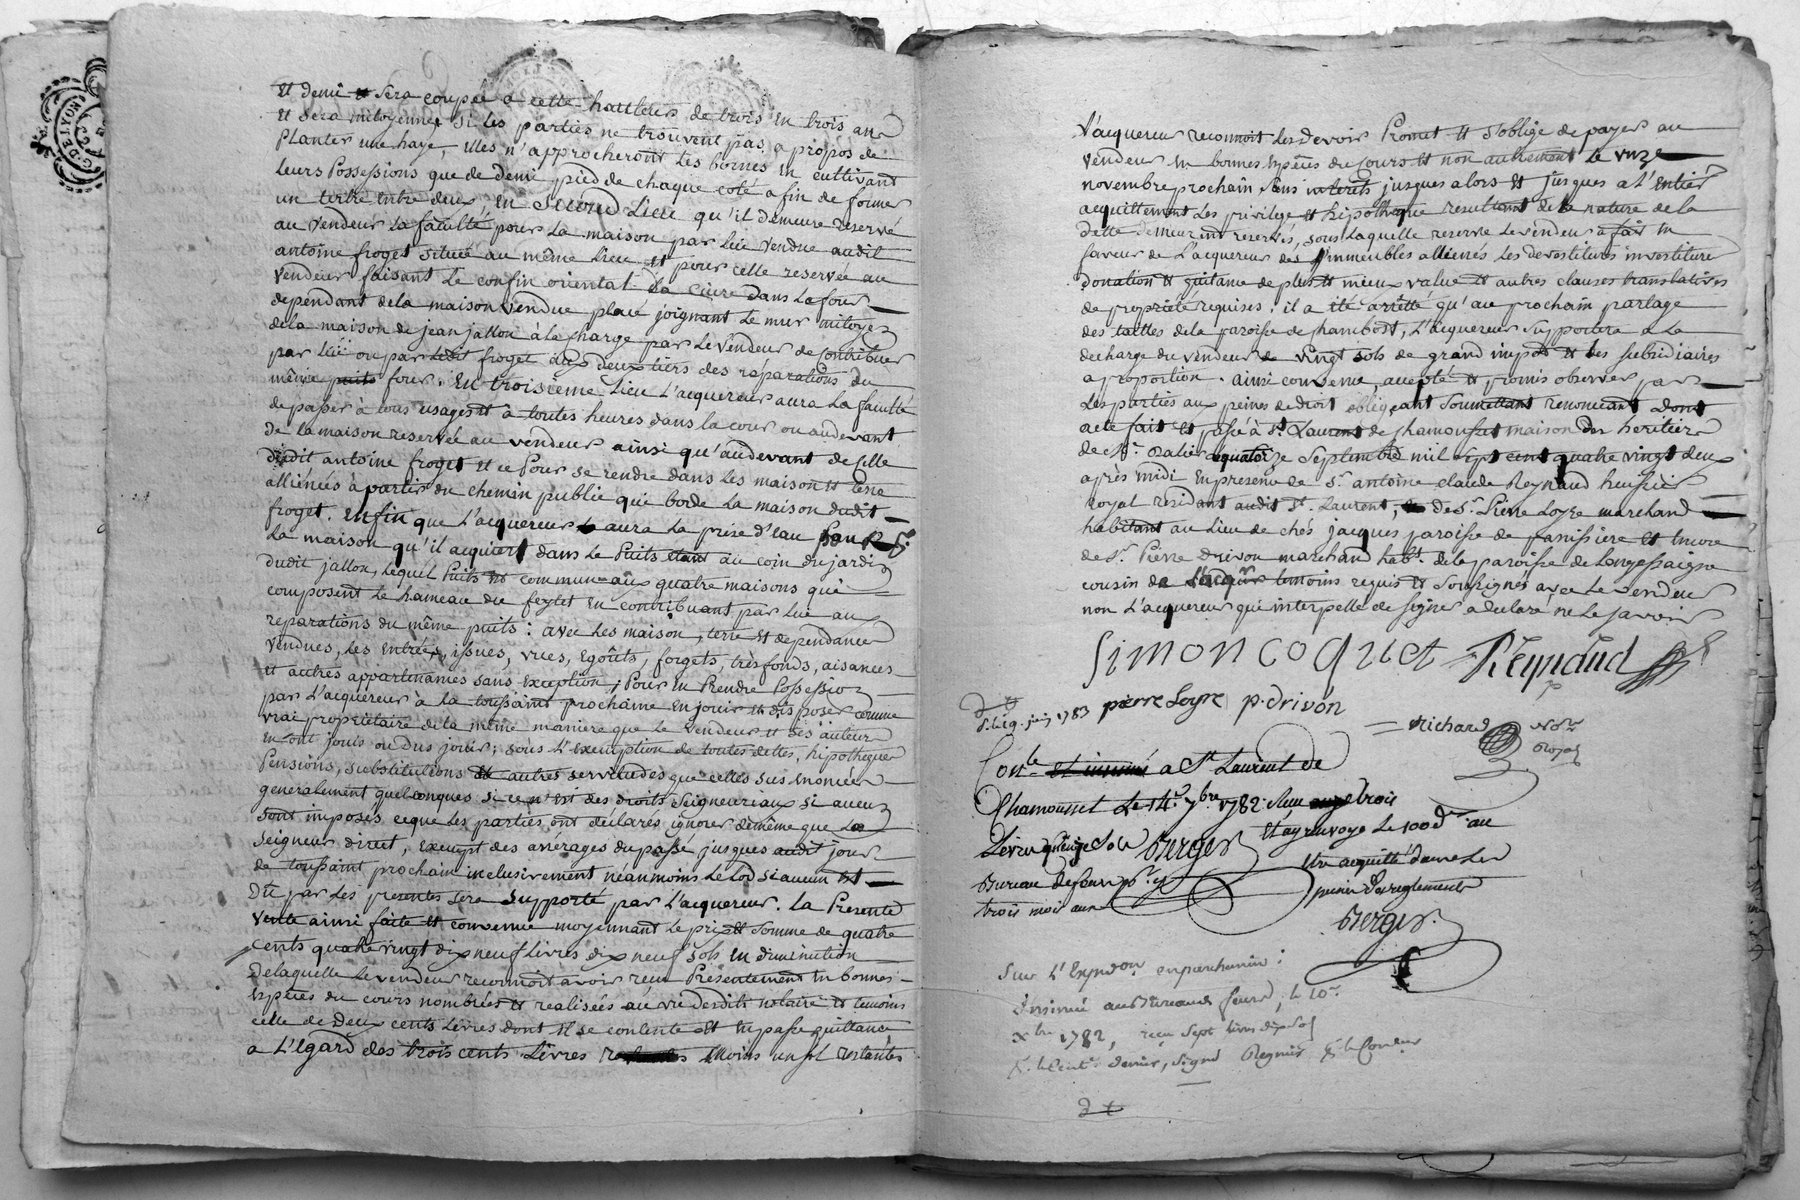 et demi et sera coupée a cette hautteur de trois en trois ans
et sera mitoyenne si les parties ne trouvent pas a propos de
planter une haye, elles n'approcheront les bornes en cultivant
leurs possessions que de demi pied de chaque coté afin de former
un tertre entre deux, en second lieu qu'il demeure reservé
au vendeur la faculté pour la maison par lui vendue audit
antoine froget située au même lieu et pour celle reservée au
vendeur faisant le confin oriental de cuire dans le four
dependant de la maison vendue placé joignant le mur mitoyen
de la maison de jean jallon à la charge par le vendeur de contribuer
par lui ou par ledit froget aux deux tiers des reparations du
même four. en troisieme lieu l'acquereur aura la faculté
de passer à tous usages et à toutes heures dans la cour ou audevant
de la maison reservée au vendeur ainsi qu'audevant de celle
dudit antoine froget et ce pour se rendre dans les maison et terre
alliénées à partir du chemin public qui borde la maison dudit
froget. enfin que l'acquereur aura la prise d'eau pour
la maison qu'il acquiert dans le puits etant au coin du jardin
dudit jallon, lequel puits est commun aux quatre maisons qui
composent le hameau du feytet en contribuant par lui aux
reparations du même puits: avec les maison, terre et dependances
vendues, les entrées, issues, vues, egoûts, forgets, tresfonds, aisances
et autres appartenances sans exception; pour en prendre possession
par l'acquereur à la toussaint prochaine en jouir et disposer comme
vrai propriétaire de la même maniere que le vendeur et ses auteurs
en ont joui ou dus jouir; sous l'exemption de toutes dettes, hipotheques
pensions, substitutions et autres servitudes que celles sus enoncées
generalement quelconques si ce n'est des droits seigneuriaux si aucuns
sont imposés ce que les parties ont declarés ignorer de même que le
seigneur direct, exempt des arrerages du passé jusques audit jour
de toussaint prochain inclusivement neanmoins le lod si aucun est
dû par les presentes sera supporté par l'acquereur. la presente
vente ainsi faite et convenue moyennant le prix et somme de quatre
cents quatre vingt dix neuf livres dix neuf sols en diminution
de laquelle le vendeur reconnoit avoir reçu presentement en bonnes
especes du cours nombrées et realisées au vu desdits notaire et temoins
celle de deux cents livres dont il se contente et en passe quittance
a l'egard des trois cents livres moins un sol restantes
l'acquereur reconnoit les devoir promet et s'oblige de payer au
vendeur en bonnes especes du cours et non autrement le onze
novembre prochain sans interêts jusques alors et jusques a l'entier
acquittement les privilege et hipotheque resultant de la nature de la
dette demeurent reservés, sous laquelle reserve le vendeur a fait en
faveur de l'acquereur des immeubles alliénés les devestitures investiture
donation et quitance de plus et mieux value et autres clauses translatives
de propriété requises. il a été arrêté qu'au prochain partage
des tailles de la paroisse de chambost, l'acquereur supportera a la
decharge du vendeur vingt sols de grand impot et les subsidiaires
a proportion. ainsi convenu, accepté et promis observer par
les parties aux peines de droit obligeant soumettant renonceant dont
acte fait et passé à st. Laurent de chamousset maison des heritiers
de Sr. quatorze septembre mil sept cent quatre vingt deux
après midi en presence de Sr. antoine claude Reynaud huissier
royal residant audit St. Laurent, de Sr. Pierre Loyre marchand
habitant au lieu de chés jacques paroisse de panissiere et encore
de Sr. Pierre drivon marchand habt. de la paroisse de Longessaigne
cousin de temoins requis et soussignés avec le vendeur
non l'acquereur qui interpellé de signer a declaré ne le savoir
Simon coquet Reynaud
pierre Loyre p. drivon
Richard Nore
Royal
Conle. a St Laurent de
Chamousset le 14e. 7bre 1782. Reçu trois
Livres quinze sols Berger et ay renvoyé le 100 d. au
Bureau de feurs
trois mois aux
Berger
Sur l'Expdon. en parchemin:
insinué au Bureau de feurs, le 10e.
xbre 1782, reçu sept livres dix sols
signé Regnier